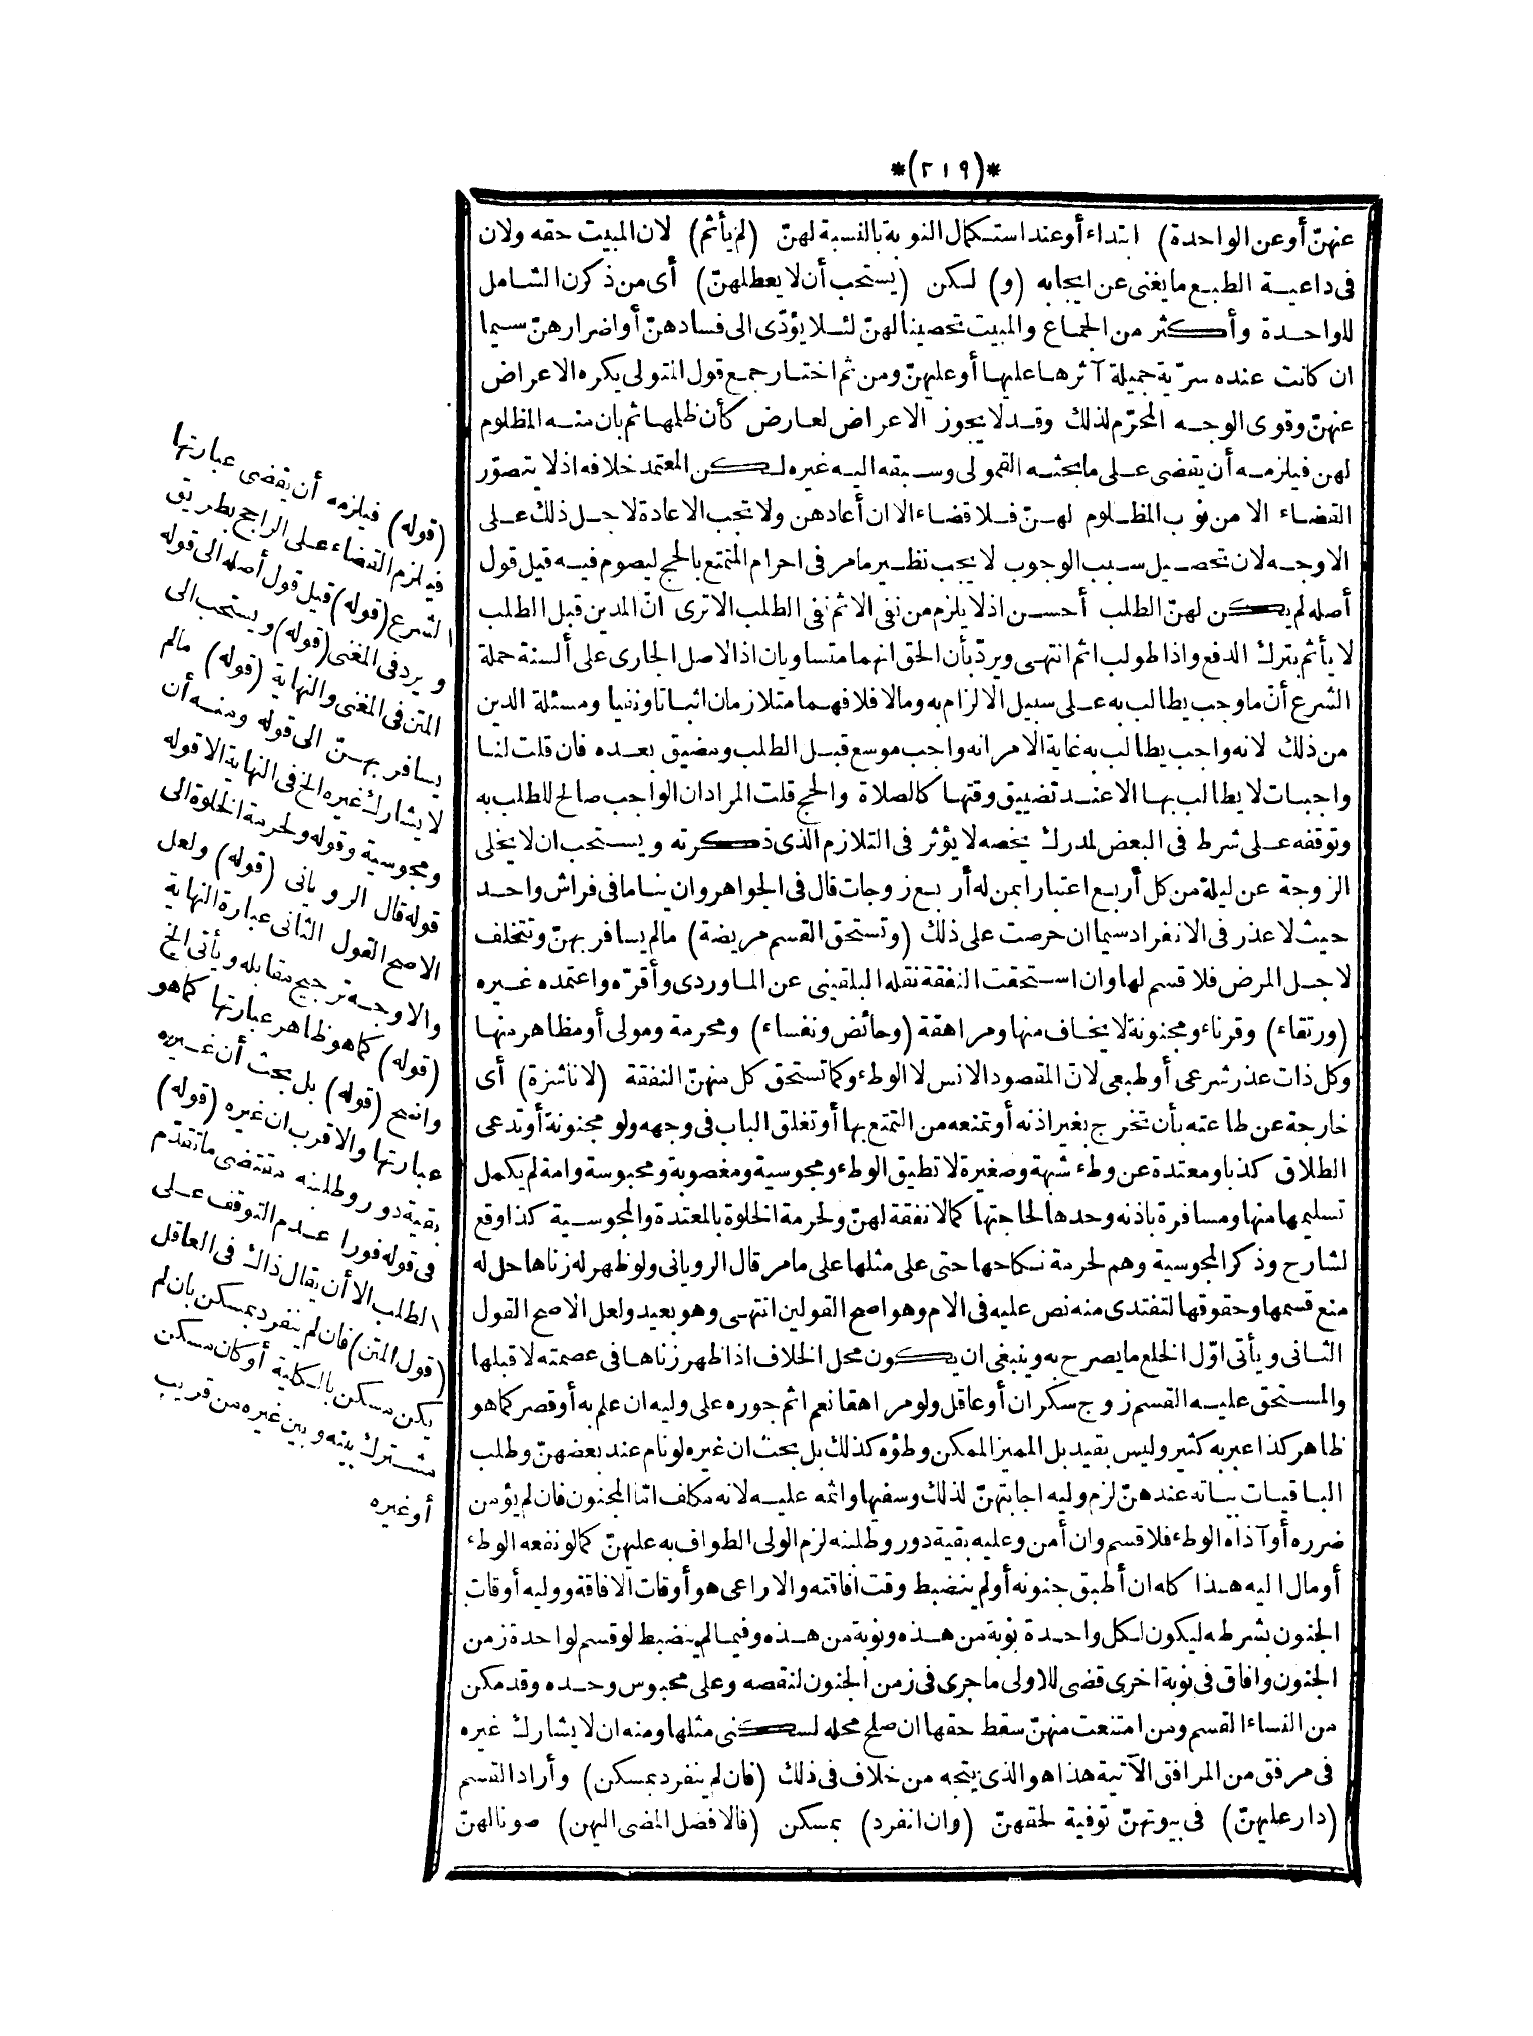 *(٢١٩)*
عنهنّ أو عن الواحدة) ابتداء أو عند استكمال النوبة بالنسبة لهنّ (لم يأثم) لان المبيت حقه ولان
فى داعية الطبع ما يغنى عن ايجابه (و) لكن (يستحب أن لا يعطلهنّ) أى من ذكرن الشامل
للواحدة وأكثر من الجماع والمبيت تحصينا لهنّ لئلا يؤدّى الى فسادهنّ أو اضرارهنّ سيما
ان كانت عنده سرّية جميلة آثرها عليها أو عليهنّ ومن ثم اختار جمع قول المتولى يكره الاعراض
عنهنّ وقوى الوجه المحرّم لذلك وقد لا يجوز الاعراض لعارض كأن ظلمها ثم بان منه المظلوم
لهن فيلزمه أن يقضى على ما بحثه القمولى وسبقه اليه غيره لكن المعتمد خلافه اذ لا يتصوّر
القضاء الا من نوب المظلوم لهنّ فلا قضاء الا ان أعادهن ولا تجب الاعادة لاجل ذلك على
الاوجه لان تحصيل سبب الوجوب لا يجب نظير ما مر فى احرام المتمتع بالحج ليصوم فيه قيل قول
أصله لم يكن لهنّ الطلب أحسن اذ لا يلزم من نفى الاثم نفى الطلب الا ترى انّ المدين قبل الطلب
لا يأثم بترك الدفع واذا طولب اثم انتهى ويردّ بأن الحق انهما متساويان اذ الاصل الجارى على ألسنة حملة
الشرع أنّ ما وجب يطالب به على سبيل الالزام به وما لا فلا فهما متلازمان اثباتا ونفيا ومسئلة الدين
من ذلك لانه واجب يطالب به غاية الامر انه واجب موسع قبل الطلب ومضيق بعده فان قلت لنا
واجبات لا يطالب بها الا عند تضييق وقتها كالصلاة والحج قلت المراد ان الواجب صالح للطلب به
وتوقفه على شرط فى البعض لمدرك يخصه لا يؤثر فى التلازم الذى ذكرته ويستحب ان لا يخلى
الزوجة عن ليلة من كل أربع اعتبارا بمن له أربع زوجات قال فى الجواهر وان يناما فى فراش واحد
حيث لا عذر فى الانفراد سيما ان حرصت على ذلك (وتستحق القسم مريضة) ما لم يسافر بهنّ وتتخلف
لاجل المرض فلا قسم لها وان استحقت النفقة نقله البلقينى عن الماوردى وأقرّه واعتمده غيره
(ورتقاء) وقرناء ومجنونة لا يخاف منها ومراهقة (وحائض ونفساء) ومحرمة ومولى أو مظاهر منها
وكل ذات عذر شرعى أو طبعى لانّ المقصود الانس لا الوطء وكما تستحق كل منهنّ النفقة (لا ناشزة) أى
خارجة عن طاعته بأن تخرج بغير اذنه أو تمنعه من التمتع بها أو تغلق الباب فى وجهه ولو مجنونة أو تدعى
الطلاق كذبا ومعتدة عن وطء شبهة وصغيرة لا تطيق الوطء ومجوسية ومغصوبة ومحبوسة وامة لم يكمل
تسليمها منها ومسافرة باذنه وحدها لحاجتها كما لا نفقة لهنّ ولحرمة الخلوة بالمعتدة والمجوسية كذا وقع
لشارح وذكر المجوسية وهم لحرمة نكاحها حتى على مثلها على ما مر قال الرويانى ولو ظهر له زناها حل له
منع قسمها وحقوقها لتفتدى منه نص عليه فى الام وهو اصح القولين انتهى وهو بعيد ولعل الاصح القول
الثانى ويأتى اوّل الخلع ما يصرح به وينبغى ان يكون محل الخلاف اذا ظهر زناها فى عصمته لا قبلها
والمستحق عليه القسم زوج سكران أو عاقل ولو مراهقا نعم اثم جوره على وليه ان علم به أو قصر كما هو
ظاهر كذا عبر به كثير وليس بقيد بل المميز الممكن وطؤه كذلك بل بحث ان غيره لو نام عند بعضهنّ وطلب
الباقيات بياته عندهنّ لزم وليه اجابتهنّ لذلك وسفيها واثمه عليه لانه مكلف امّا المجنون فان لم يؤمن
ضرره أو آذاه الوطء فلا قسم وان أمن وعليه بقية دور وطلبنه لزم الولى الطواف به عليهنّ كما لو نفعه الوطء
أو مال اليه هذا كله ان أطبق جنونه أو لم ينضبط وقت افاقته والا راعى هو أوقات الافاقة ووليه أوقات
الجنون بشرطه ليكون لكل واحدة نوبة من هذه ونوبة من هذه وفيما لم ينضبط لو قسم لواحدة زمن
الجنون وافاق فى نوبة اخرى قضى للاولى ما جرى فى زمن الجنون لنقصه وعلى محبوس وحده وقد مكن
من النساء القسم ومن امتنعت منهنّ سقط حقها ان صلح محله لسكنى مثلها ومنه ان لا يشارك غيره
فى مرفق من المرافق الآتية هذا هو الذى يتجه من خلاف فى ذلك (فان لم ينفرد بمسكن) وأراد القسم
(دار عليهنّ) فى بيوتهنّ توفية لحقهنّ (وان انفرد) بمسكن (فالافضل المضى اليهن) صونا لهنّ
(قوله) فيلزمه أن يقضى عبارتها
فيلزم القضاء على الراجح بطريق
الشرع (قوله) قيل قول أصله الى قوله
ويرد فى المغنى (قوله) ويستحب الى
المتن فى المغنى والنهاية (قوله) ما لم
يسافر بهنّ الى قوله ومنه أن
لا يشارك غيره الخ فى النهاية الا قوله
ومجوسية وقوله ولحرمة الخلوة الى
قوله قال الرويانى (قوله) ولعل
الاصح القول الثانى عبارة النهاية
والاوجه ترجيح مقابله ويأتى الخ
(قوله) كما هو ظاهر عبارتها كما هو
واضح (قوله) بل بحث أن غيره
عبارتها والاقرب ان غيره (قوله)
بقية دور وطلبنه مقتضى ما تقدّم
فى قوله فورا عدم التوقف على
الطلب الا أن يقال ذاك فى العاقل
(قول المتن) فان لم ينفرد بمسكن بان لم
يكن مسكن بالكلية أو كان مسكن
مشترك بينه وبين غيره من قريب
أو غيره